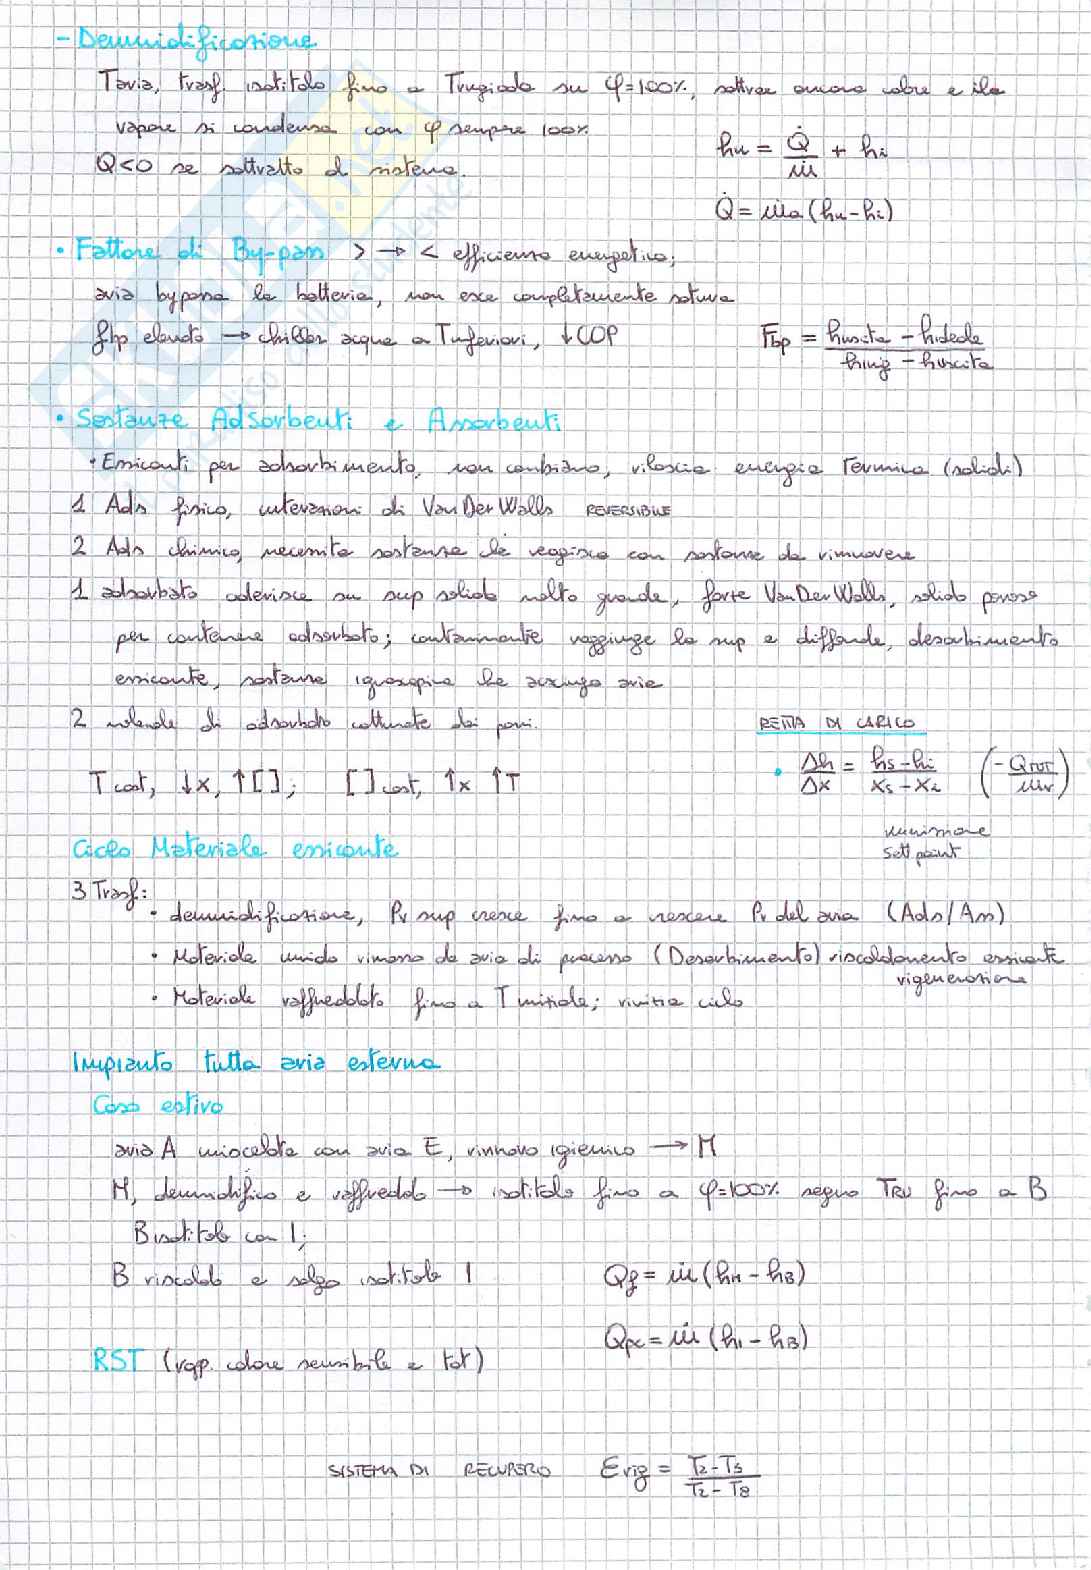 - Deumidificazione
T aria, trasf. isotitolo fino a T rugiada su φ=100%, sottrae ancora calore e il
vapore si condensa con φ sempre 100%
Q<0 se sottratto al sistema.
hu = Q̇/ṁ + hi
Q̇ = ṁa (hu-hi)
• Fattore di By-pass > → < efficienza energetica;
aria bypassa la batteria, non esce completamente satura
fbp elevato → chiller acqua a T inferiori, ↓COP
Fbp = huscita - hideale / hing - huscita
• Sostanze Adsorbenti e Assorbenti
• Essiccanti per adsorbimento, non cambiano, rilascia energia Termica (solidi)
1 Ads fisico, interazioni di Van Der Walls REVERSIBILE
2 Ads chimico, necessita sostanza che reagisca con sostanza da rimuovere
1 adsorbato aderisce su sup solido molto grande, forte Van Der Walls, solido poroso
per contenere adsorbato; contaminante raggiunge la sup e diffonde, desorbimento
essiccante, sostanza igroscopica che asciuga aria
2 molecole di adsorbato catturate dai pori.
T cost, ↓x, ↑[ ]; [ ] cost, ↑x ↑T
RETTA DI CARICO
• Δh/Δx = hs-hi / xs-xi (-QTOT / ṁv)
immissione
Sett point
Ciclo Materiale essiccante
3 Trasf:
• deumidificazione, Pv sup cresce fino a crescere Pv del aria (Ads/Ass)
• Materiale umido rimosso da aria di processo (Desorbimento) riscaldamento essiccante
rigenerazione
• Materiale raffreddato fino a T iniziale; rinizia ciclo
Impianto tutta aria esterna
Caso estivo
aria A miscelata con aria E, rinnovo igienico → M
M, deumidifico e raffreddo → isotitolo fino a φ=100% seguo TRU fino a B
B isotitolo con I;
B riscaldo e salgo isotitolo I
Qf = ṁ (hM - hB)
Qpc = ṁ (hI - hB)
RST (rapp. calore sensibile e tot)
SISTEMA DI RECUPERO Erig = T2-T3 / T2-T8